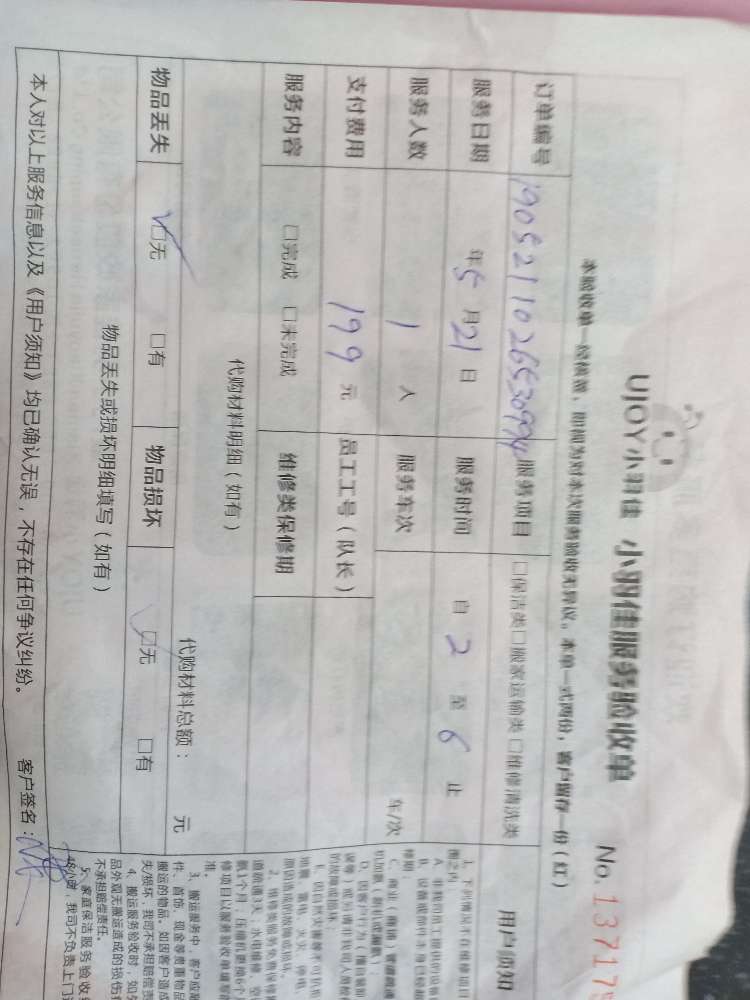 UJOY小羽佳 小羽佳服务验收单 No.137175
本验收单一经核签，即视为对本次服务验收无异议。本单一式两份，客户留存一份（红）
订单编号 服务项目 □保洁类□搬家运输类□维修清洗类
服务日期 年5月21日 服务时间 自2至6止
服务人数 1人 服务车次 车/次
支付费用 199元 员工工号（队长）
服务内容 □完成 □未完成 维修类保修期
代购材料明细（如有）
代购材料总额： 元
物品丢失 □无 □有 物品损坏 □无 □有
物品丢失或损坏明细填写（如有）
本人对以上服务信息以及《用户须知》均已确认无误，不存在任何争议纠纷。 客户签名：
用户须知
3、搬运服务中，客户应
件、首饰、现金等贵重物品
搬运的物品，如因客户造成
失/损坏，我司不承担赔偿责
4、搬运服务验收时，如外
品外观无搬运造成的损伤
不承担赔偿责任。
5、家庭保洁服务验收
48小时，我司不负责上门